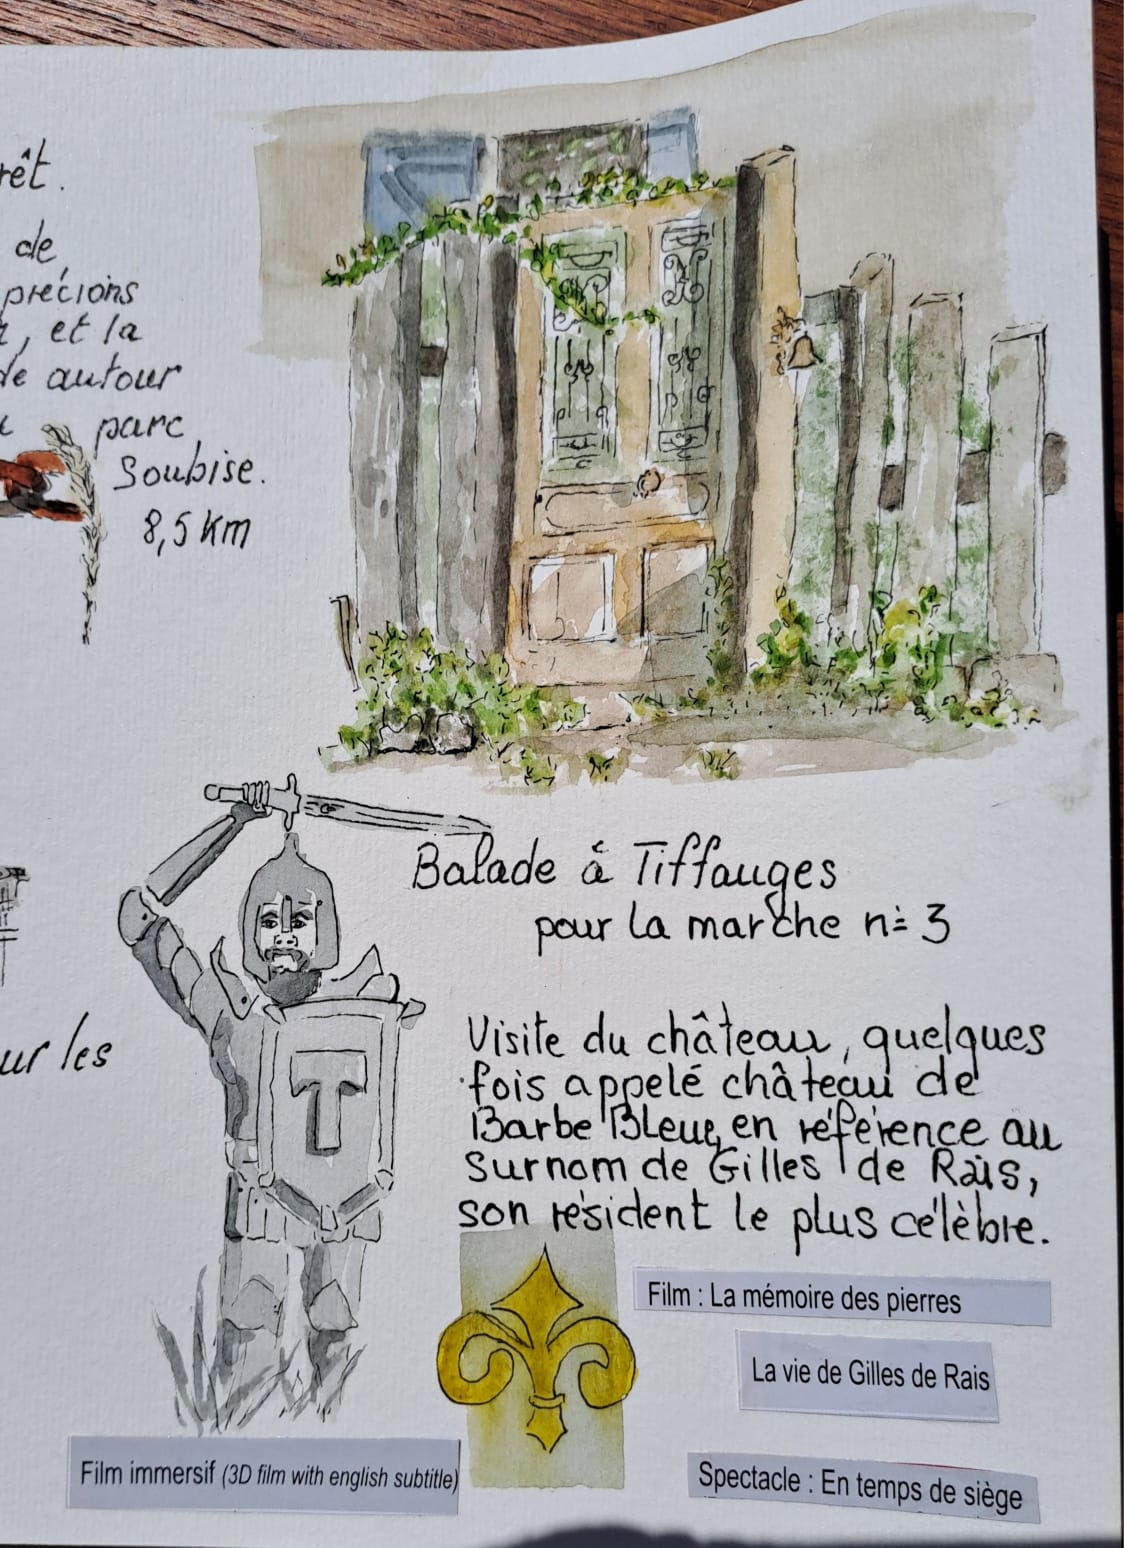 rêt.
de
précions
, et la
de autour
parc
Soubise.
8,5 Km
ur les
Balade à Tiffauges
pour la marche n° 3
Visite du château, quelques
fois appelé château de
Barbe Bleue, en référence au
surnom de Gilles de Rais,
son résident le plus célèbre.
T
Film : La mémoire des pierres
La vie de Gilles de Rais
Film immersif (3D film with english subtitle)
Spectacle : En temps de siège